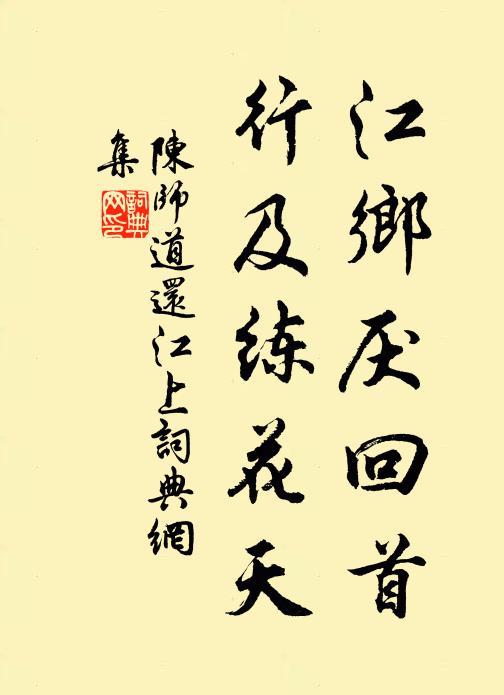 江鄉厌回首
行及练花天
陳師道還江上詞典網
集
詞典网印